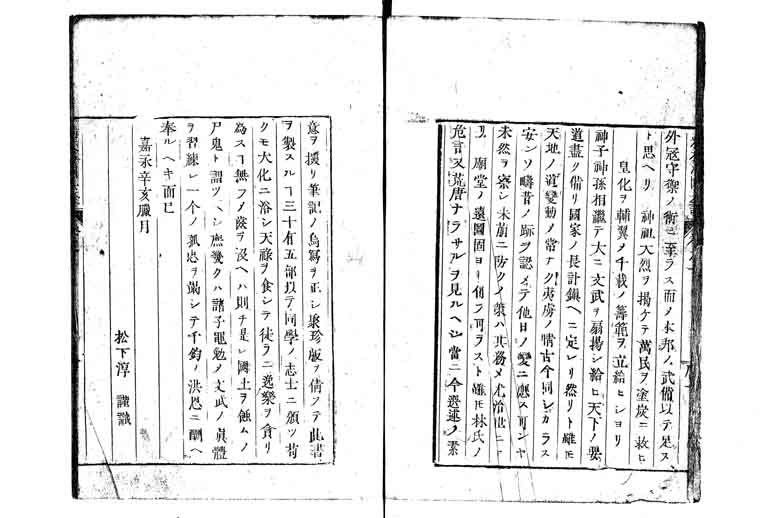 外寇守禦ノ術ニ至ラス而メ本邦ノ武備以テ足ス
ト思ヘリ 神祖大烈ヲ揚ケテ萬民ヲ塗炭ニ救ヒ
皇化ヲ輔翼メ千載ノ籌範ヲ立給ヒシヨリ
神子神孫相繼テ大ニ文武ヲ扇揚シ給ヒ天下ノ要
道盡ク備リ國家ノ長計鎮ヘニ定レリ然リト雖モ
天地ノ変動ノ常ナク夷虜ノ情古今同シカラス
安ンソ疇昔ノ跡ヲ認メテ他日ノ變ニ應ス可ンヤ
未然ヲ察シ未萠ニ防クノ策ハ其務メ尤治世ニ
リ 廟堂ノ遠圖固ヨリ 可ラスト雖モ林氏ノ
危言又荒唐ナラサルヲ見ルヘシ當ニ今選述ノ素
意ヲ援リ筆記ノ烏寫ヲ正シ聚珍版ヲ倩フテ此書
ヲ製スルヿ三十有五部以テ同學ノ志士ニ頒ツ苟
クモ大化ニ浴シ天祿ヲ食シテ徒ラニ逸樂ヲ貪リ
為スヿ無フメ ヲ没ヘハ則チ是レ國土ヲ蝕ムノ
尸鬼ト謂ツヘシ庶幾クハ諸子黽勉メ文武ノ眞體
ヲ習練シ一个ノ孤忠ヲ勵シテ千鈞ノ洪恩ニ酬ヘ
奉ルヘキ而已
嘉永辛亥臘月
松下淳 謹識